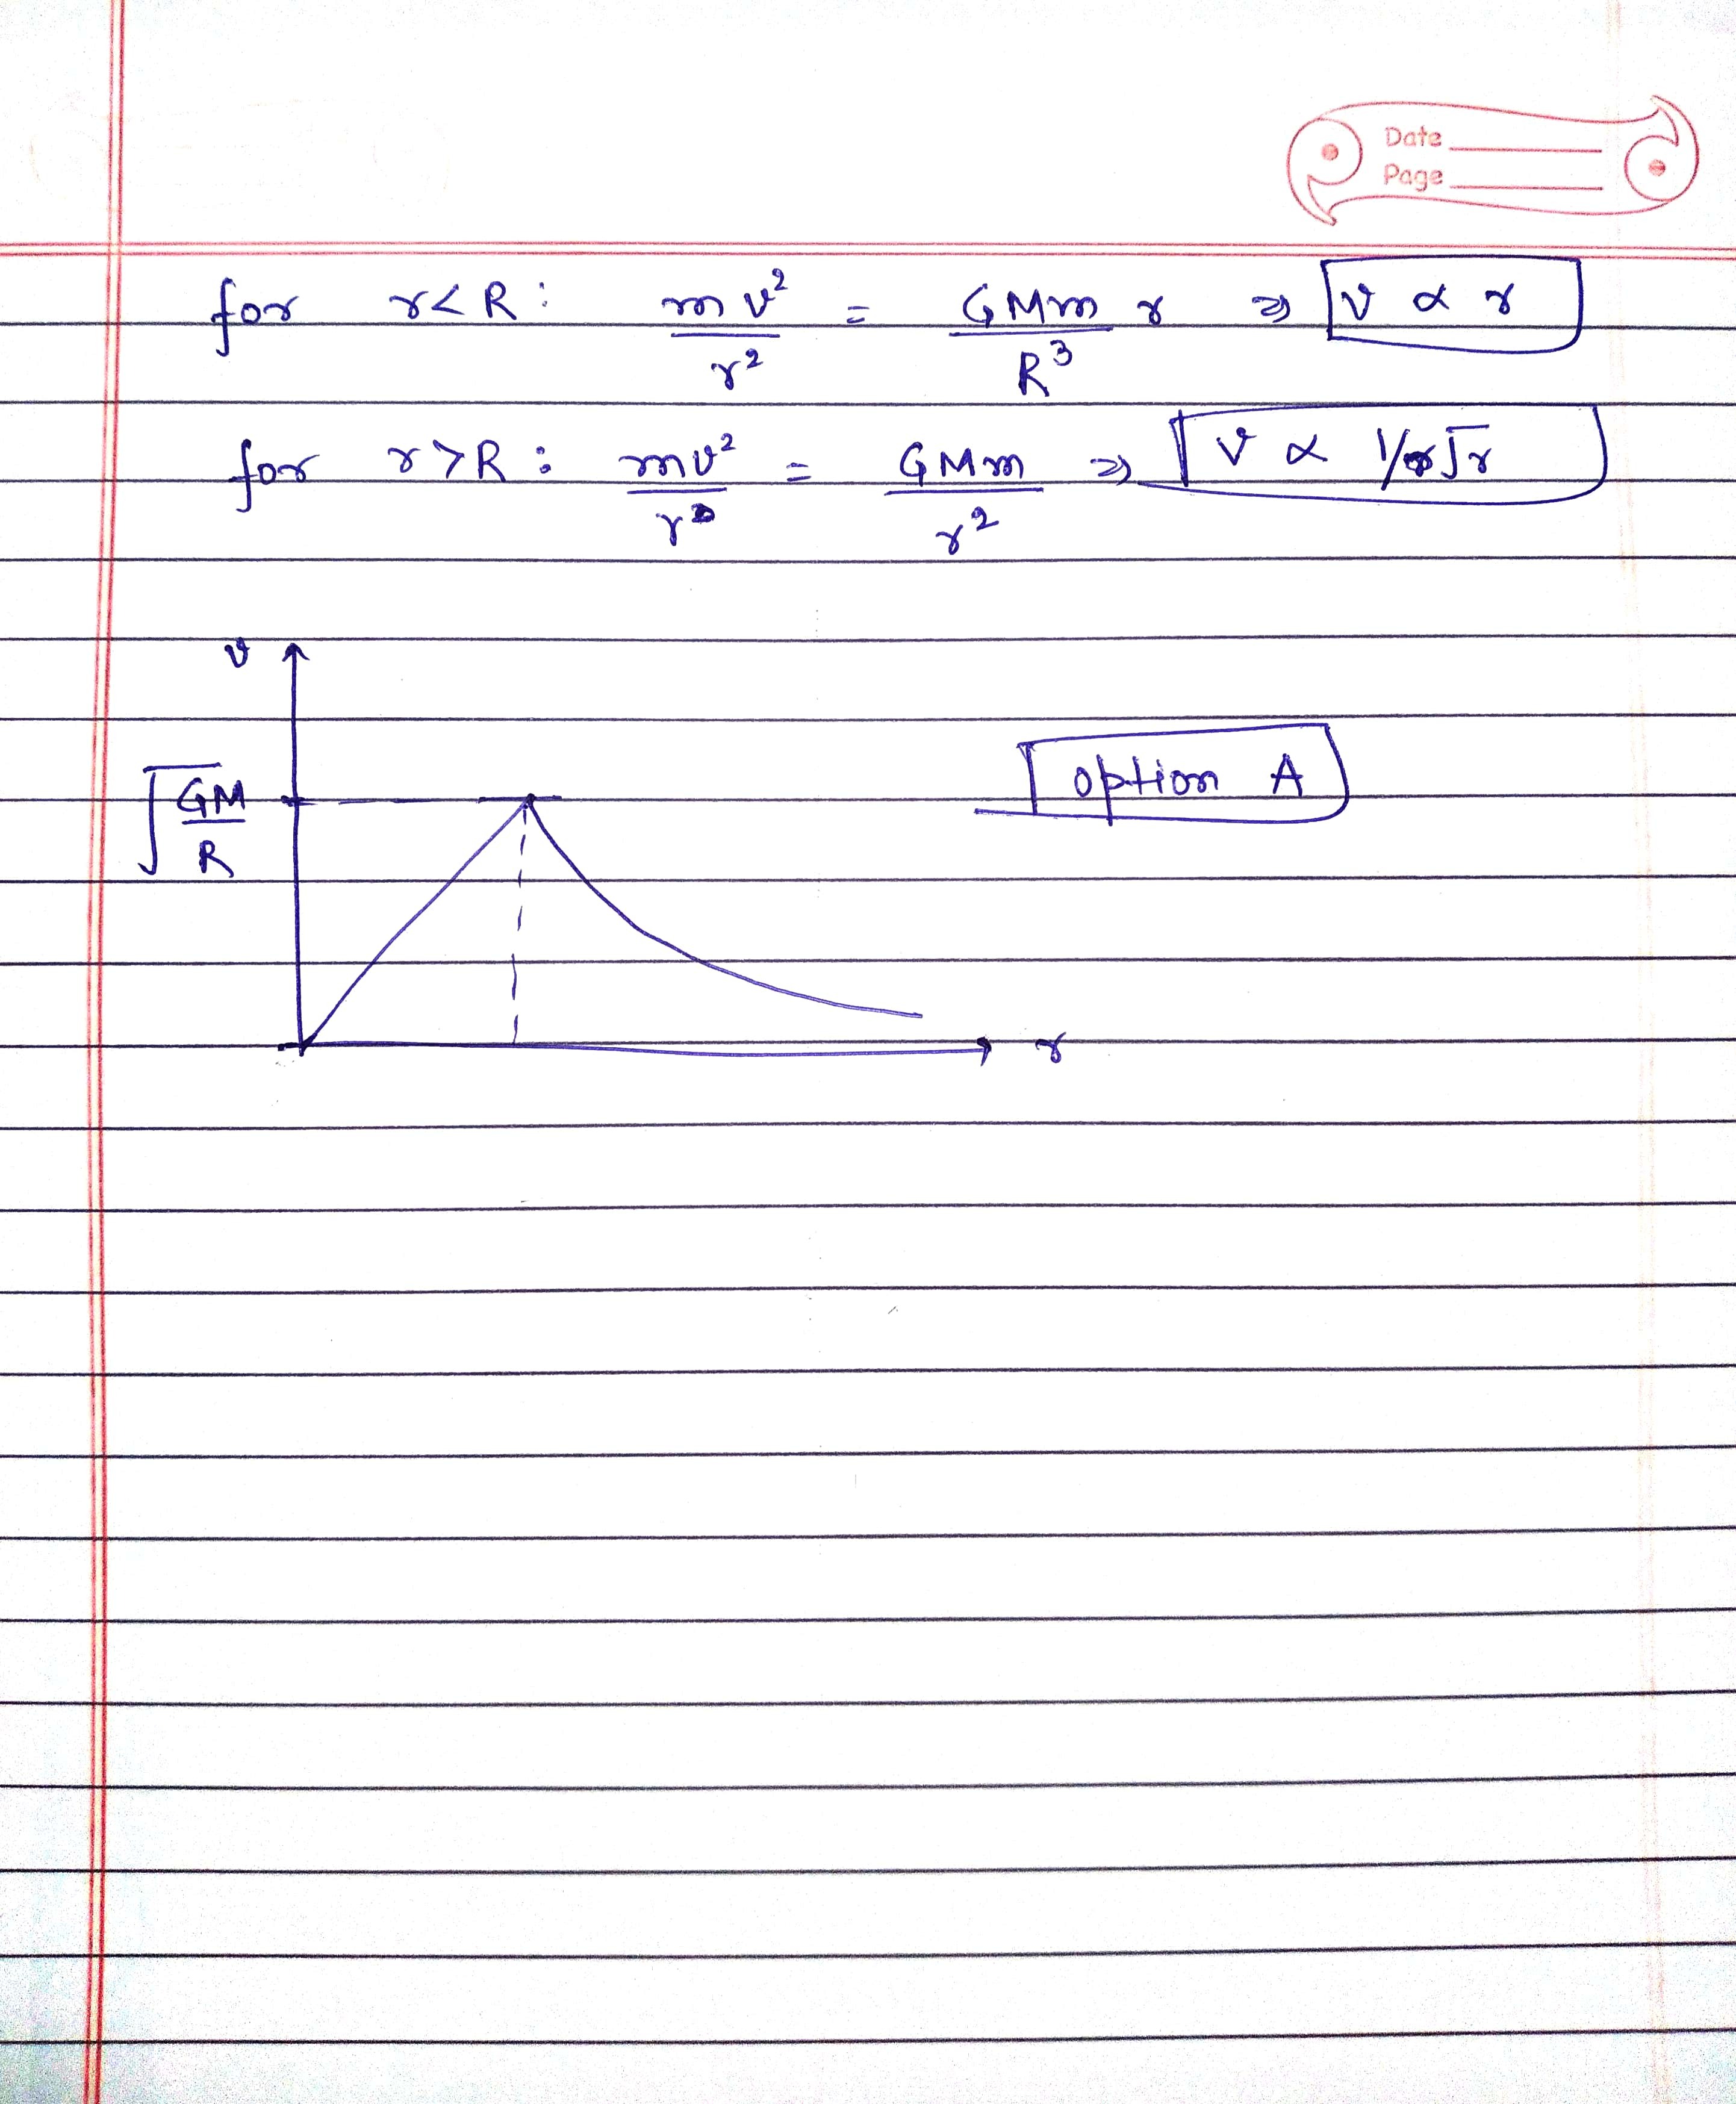 Date
Page
for r<R : mv²/r² = GMm/R³ r ⇒ v ∝ r
for r>R : mv²/r = GMm/r² ⇒ v ∝ 1/√r
v
√GM/R
option A
r